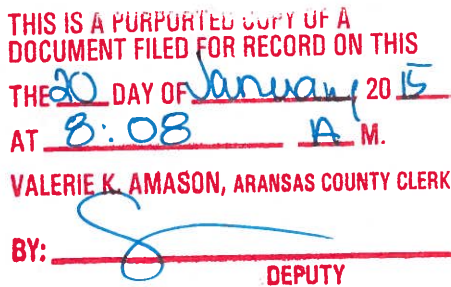 THIS IS A PURPORTED COPY OF A
DOCUMENT FILED FOR RECORD ON THIS
THE 20 DAY OF January 20 15
AT 8:08 A M.
VALERIE K. AMASON, ARANSAS COUNTY CLERK
BY:
DEPUTY